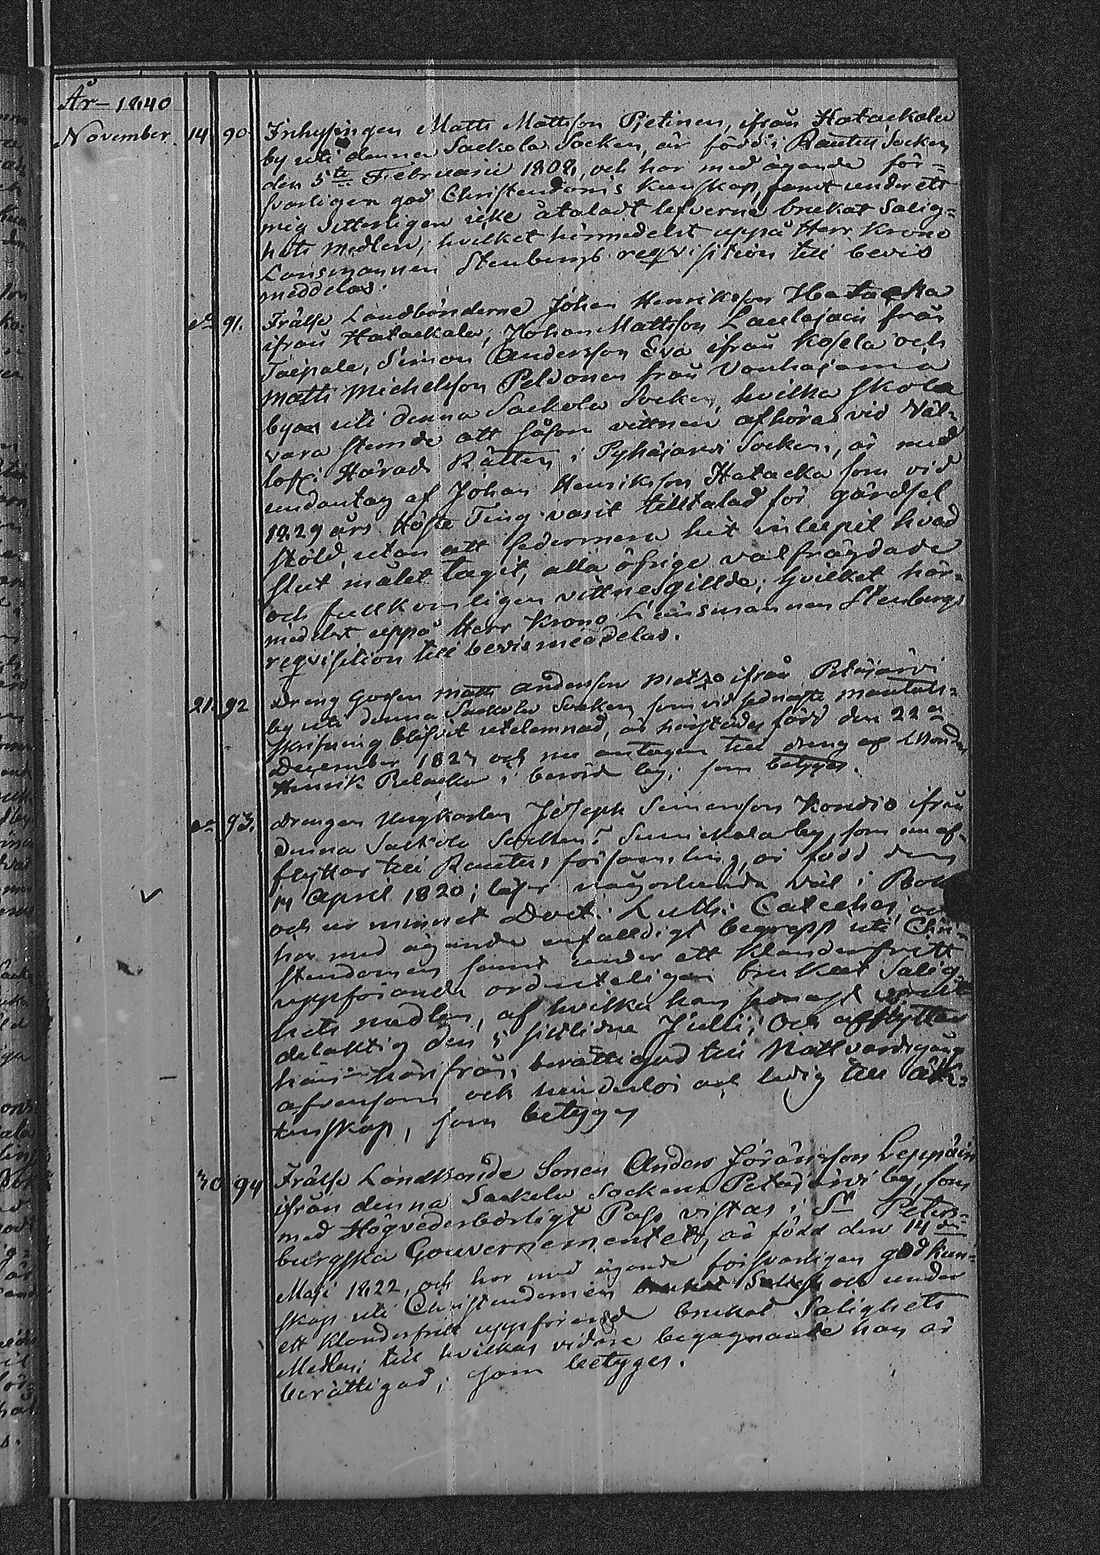 År 1840
November 14. 90. Inhysingen Matts Mattsson Pietinen, ifrån Hatackala
by uti denna Sackola Socken, är född i Rautus Socken
den 5te Februarii 1808, och har med ägande för-
svarligen god Christendoms kunskap, samt under ett
mig vitterligen icke åtaladt lefverne brukat Salig-
hets medlen; hvilket härmedelst uppå Herr Krono
Länsmannen Stenbergs reqvisition till bevis
meddelas.
do 91. Frälse Landbönderne Johan Henriksson Hatacka
ifrån Hatackala, Johan Mattsson Laulajain från
Taipale, Simon Andersson Eva ifrån Kosela och
Matts Michelsson Peldonen från Vanhajama
byar uti denna Sackola Socken, hvilka skola
vara stemde att såsom vittnen afhöras vid Väl-
lofl. Härads Rätten i Pyhäjärvi Socken, är med
undantag af Johan Henriksson Hatacka som vid
1829 års Höste Ting varit tilltalad för gärdsel
stöld, utan att sedermera här inlupit hvad
slut målet tagit, alla öfrige välfrägdade
och fullkomligen vittnesgillde; hvilket här-
medelst uppå Herr Krono Länsmannen Stenbergs
reqvisition till bevis meddelas.
21. 92. Dreng Gossen Matts Andersson ifrån Petäjärvi
by uti denna Sackola Socken, som vid sednaste mantals-
skrifning blifvit utelemnad, är härstädes född den 22
December 1827 och nu antagen till dreng af
Henrik i berörde by; som betygas.
do 93. Drengen Ungkarlen Joseph Simonsson Kondio ifrån
denna Sackola Socken by, som nu af-
flyttar till Rautus församling, är född den
14 April 1820; läser någorlunda väl i Bok
och ur minnet Doct. Luth: Cateches, och
har med ägande enfaldigt begrepp uti Chri-
stendomen samt under ett klanderfritt
uppförande ordenteligen brukat Salig-
hets medlen, af hvilka han senast varit
delaktig den 5 sistlidne Julii; Och afflyttar
han härifrån, berättigad till Nattvardsgång
och hinderlös och ledig till Äk-
tenskap, som betygas
30. 94. Frälse Landbonde Sonen Anders Jöransson Leppäin
ifrån denna Sackola Socken Petäjärvi by, som
med Högvederbörligt Pass vistas i St. Peters-
burgska Gouvernementet, är född den 14de
Maji 1822, och har med ägande försvarligen god kun-
skap uti Christendomen och under
ett klanderfritt uppförande brukat Salighets
Medlen; till hvilkas vidare begagnande han är
berättigad; som betygas.